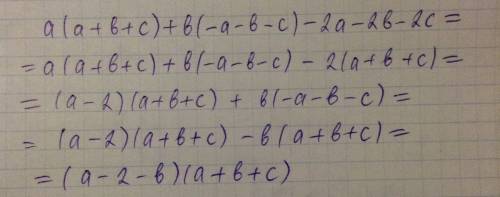 a(a+в+c)+в(-a-в-c)-2a-2в-2c=
=a(a+в+c)+в(-a-в-c)-2(a+в+c)=
=(a-2)(a+в+c)+в(-a-в-c)=
=(a-2)(a+в+c)-в(a+в+c)=
=(a-2-в)(a+в+c)